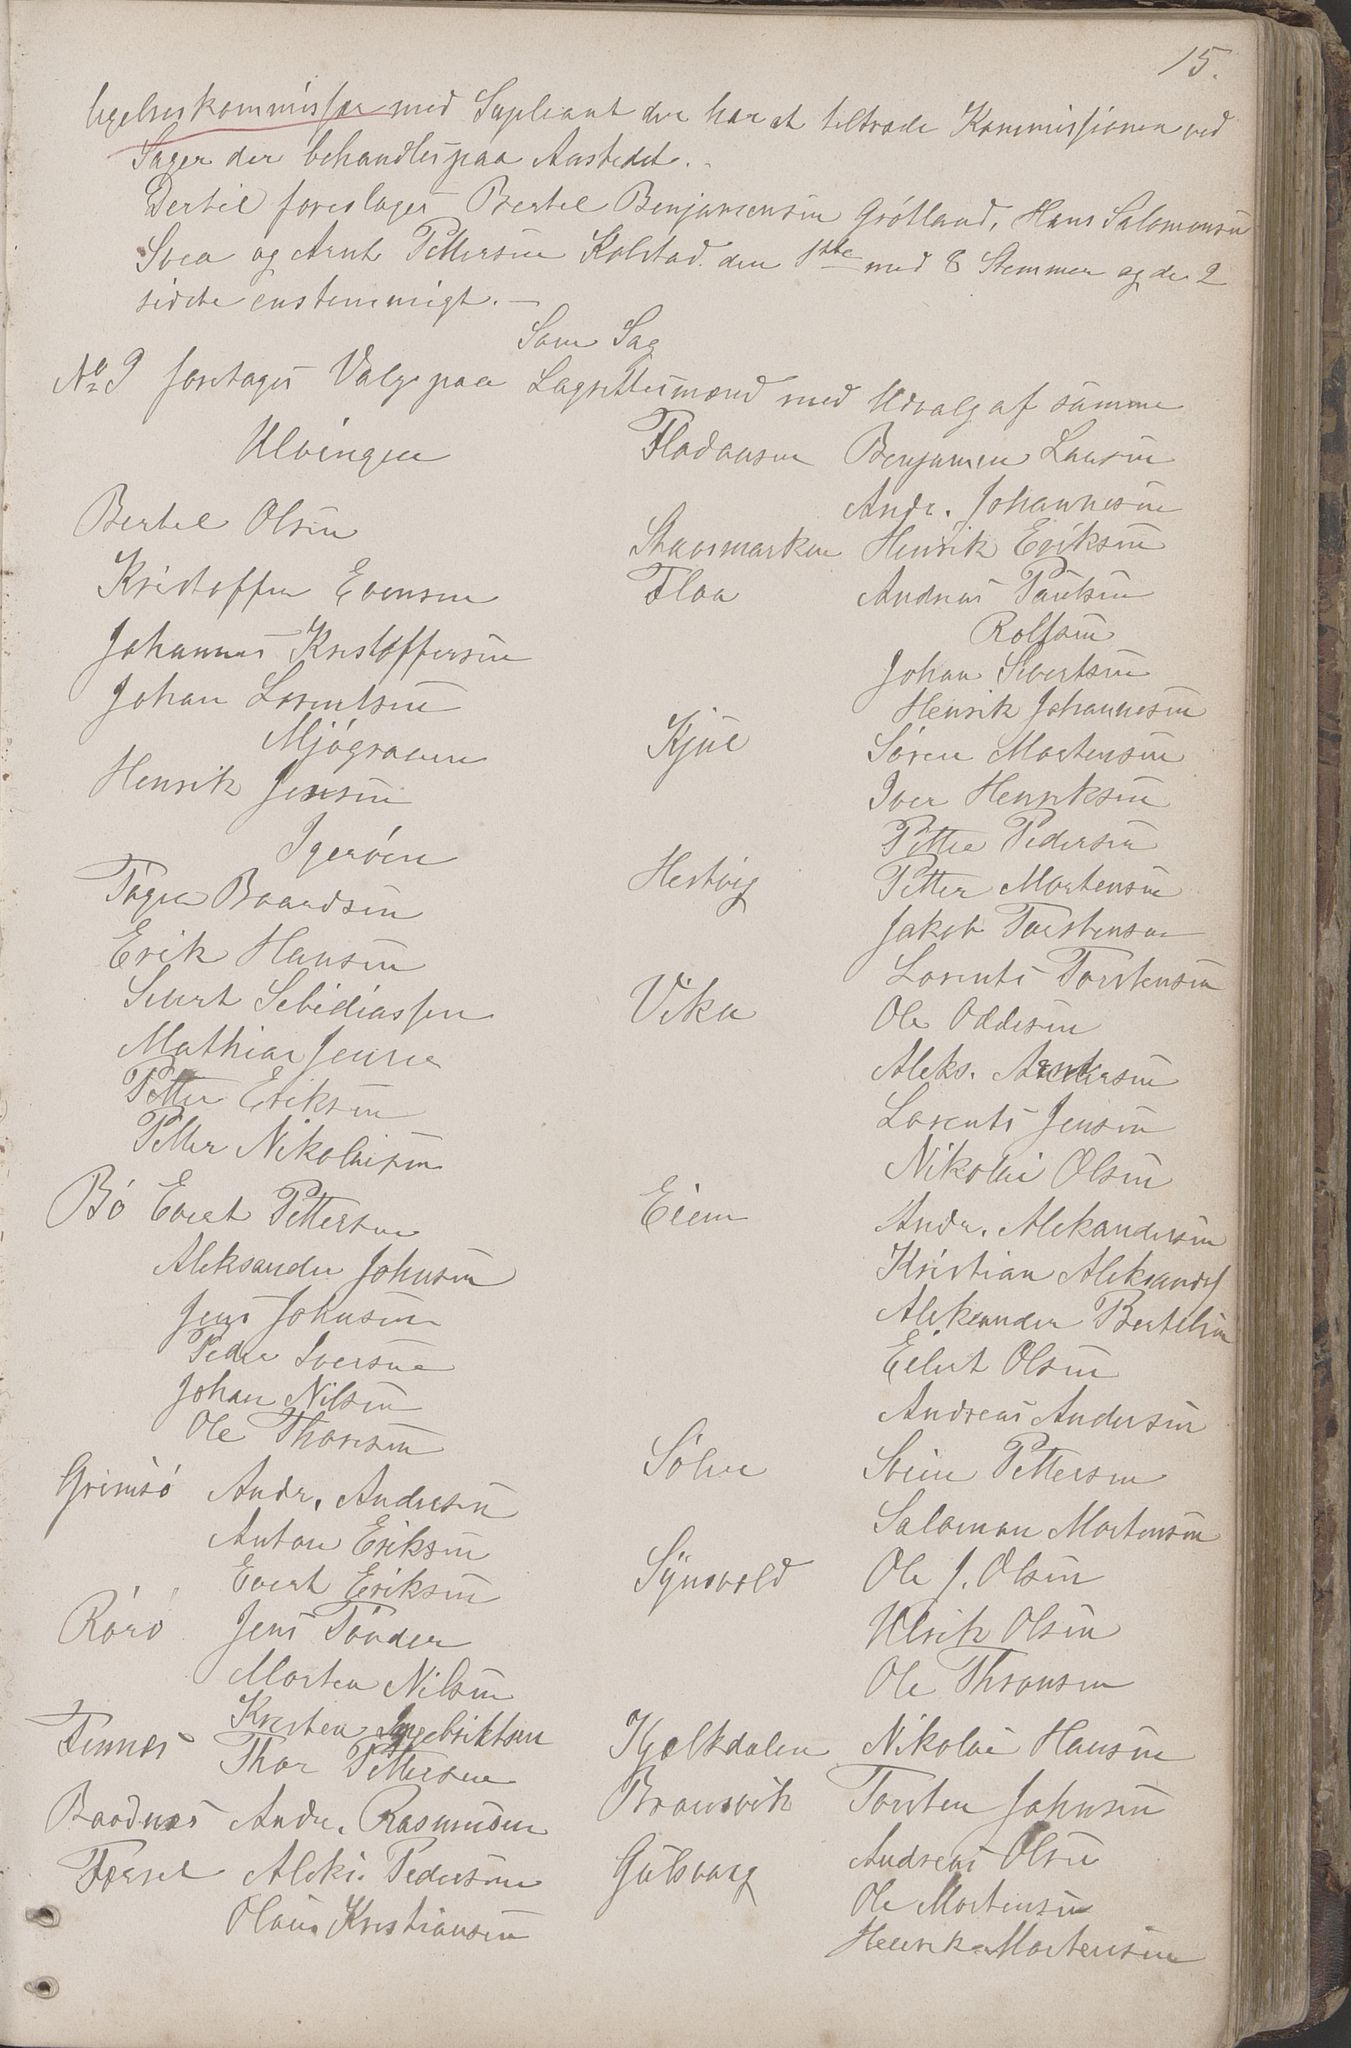 15.
ligelseskommissær med Supleant der har at tiltræde Kommissionen ved
Sager der behandles paa Aastedet.
Dertil foreslages Bertel Benjamensen Grötland, Hans Salomonsen
Svea og Arnt Pettersen Kolstad. den 1ste med 8 Stemmer og de 2
sidste enstemmigt. —
Som Sag
No 9 foretages Valg paa Lagrettesmænd med Udvalg af samme
Ulvingen
Bertel Olsen
Kristoffer Evensen
Johannes Kristoffersen
Johan Lorentsen
Mjögraven
Henrik Jensen
Igeröen
Tager Baardsen
Erik Hansen
Sivert Sebidiassen
Mathias Jensen
Petter Eriksen
Petter Nikolaisen
Bö Evert Pettersen
Aleksander Johnsen
Jens Johnsen
Peder Iversen
Johan Nilsen
Ole Thoresen
Grimsö Andr. Andresen
Anton Eriksen
Evert Eriksen
Rörö Jens Tönder
Morten Nilsen
Kristen Ingebriktsen
Finnes Thor Pettersen
Baadnes Andr. Rasmusen
Forsel Aleks. Pedersen
Olaus Kristiansen
Fladaasen Benjamen Laasen
Andr. Johannesen
Stavsmarken Henrik Eriksen
Floa Andreas Paulsen
Rolfsen
Johan Sivertsen
Henrik Johannesen
Kjul Sören Mortensen
Iver Henriksen
Petter Pedersen
Hestvig Petter Mortensen
Jakob Torstensen
Lorents Torstensen
Vika Ole Oddesen
Aleks. Andersen
Lorents Jensen
Nikolai Olsen
Eiem Andr. Aleksandersen
Kristian Aleksands
Aleksander Bertelsen
Eilert Olsen
Andreas Andersen
Sölve Svein Pettersen
Saloman Mortensen
Synsvold Ole J. Olsen
Ulrik Olsen
Ole Thronsen
Kjelkdalen Nikolai Hansen
Bronsvik Torsten Johnsen
Gulsvaag Andreas Olsen
Ole Mortensen
Henrik Mortensen